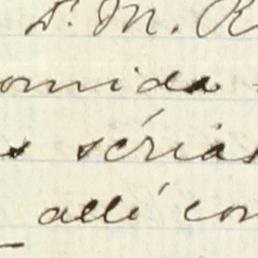 Dr. M. R
omida
s sérias
allé con